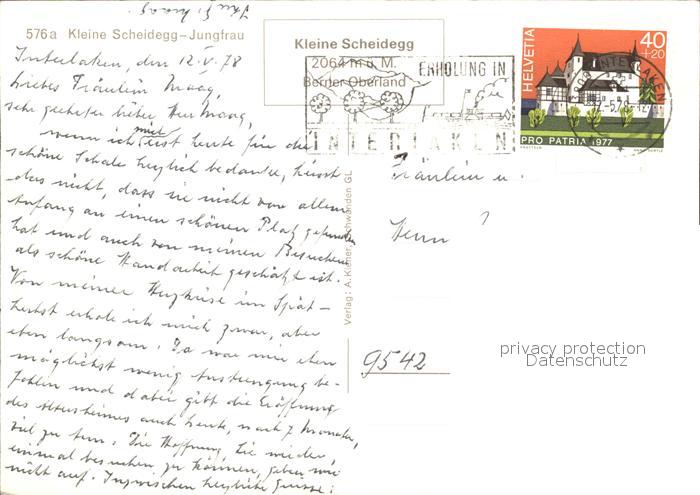 Ihr F. Maag.
576a Kleine Scheidegg-Jungfrau
Kleine Scheidegg
2064 m ü. M.
Berner Oberland
ERHOLUNG IN
INTERLAKEN
HELVETIA
40
+20
PRO PATRIA 1977
INTERLAKEN
Interlaken, den 12. V. 78
Liebes Fräulein Maag,
sehr geehrter lieber Herr Maag,
wenn ich mich erst heute für die
schöne Schale herzlich bedanke, heisst
das nicht, dass sie nicht von allem
Anfang an einen schönen Platz gefunden
hat und auch von meinen Besuchern
als schöne Handarbeit geschätzt ist.
Von meiner Herzkrise im Spät-
herbst erhole ich mich zwar, aber
eben langsam. Es war mir eben
möglichst wenig Anstrengung be-
fohlen und dabei gibt die Eröffnung
des Altersheimes auch heute, nach 7 Monaten,
viel zu tun. Die Hoffnung, Sie wieder
einmal besuchen zu können, geben wir
nicht auf. Inzwischen herzliche Grüsse:
Verlag: A. Schwanden GL
Fräulein u.
Herrn
9542
privacy protection
Datenschutz